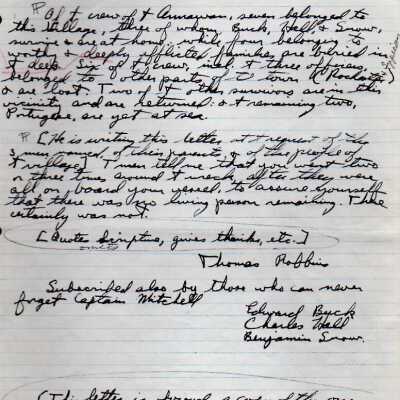 Of + crew of + Annawan, seven belonged to
this village, three of whom, Buck, Hall, & Snow,
survive & are at home, while four belonging to
worthy & deeply afflicted families are buried in
+ deep. Six of + crew, incl. + three officers,
belonged to other parts of + town (Rochester)
& are lost. Two of + other survivors are in this
vicinity and are returned: & + remaining two,
Portugese, are yet at sea.
[He is writing this letter at + request of the
3 men named, of their parents, & of the people of
+ village] They tell me that you went two
or three times around + wreck, after they were
all on board your vessel, to assure yourself
that there was no living person remaining. There
certainly was not.
[Quotes Scripture, gives thanks, etc.]
omitted
Thomas Robbins
Subscribed also by those who can never
forget Captain Mitchell
Edward Buck
Charles Hall
Benjamin Snow.
(This letter is through a copy of the one